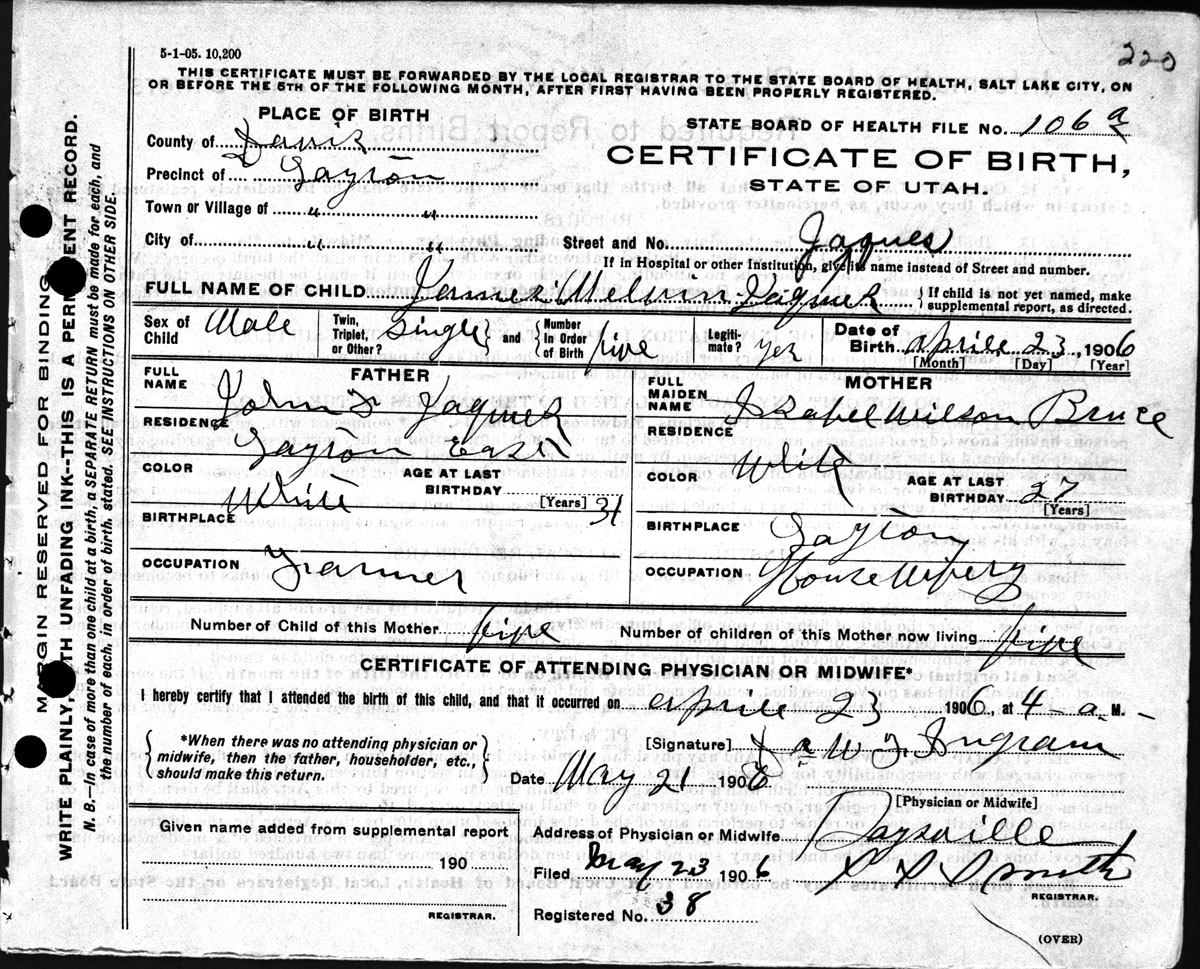 220
5-1-05. 10,200
THIS CERTIFICATE MUST BE FORWARDED BY THE LOCAL REGISTRAR TO THE STATE BOARD OF HEALTH, SALT LAKE CITY, ON
OR BEFORE THE 5TH OF THE FOLLOWING MONTH, AFTER FIRST HAVING BEEN PROPERLY REGISTERED.
PLACE OF BIRTH
STATE BOARD OF HEALTH FILE NO. 106 a
County of Davis
CERTIFICATE OF BIRTH,
Precinct of Layton
STATE OF UTAH.
Town or Village of " "
City of " " Street and No. Jaques
If in Hospital or other Institution, give its name instead of Street and number.
FULL NAME OF CHILD James Melvin Jaques { If child is not yet named, make supplemental report, as directed.
Sex of Child Male Twin, Triplet, or Other? Single } and { Number in Order of Birth five Legiti- mate? yes Date of Birth aprile 23, 1906
[Month] [Day] [Year]
FATHER
FULL NAME John F Jaques
RESIDENCE Layton East
COLOR White AGE AT LAST BIRTHDAY 31 [Years]
BIRTHPLACE
OCCUPATION Farmer
MOTHER
FULL MAIDEN NAME Isabel Wilson Bruce
RESIDENCE
COLOR White AGE AT LAST BIRTHDAY 27 [Years]
BIRTHPLACE Layton
OCCUPATION House Wifery
Number of Child of this Mother five Number of children of this Mother now living five
CERTIFICATE OF ATTENDING PHYSICIAN OR MIDWIFE*
I hereby certify that I attended the birth of this child, and that it occurred on aprile 23 1906, at 4-a M.
{ *When there was no attending physician or midwife, then the father, householder, etc., should make this return. }
[Signature] W Ingram
Date May 21 1906
[Physician or Midwife]
Given name added from supplemental report
Address of Physician or Midwife Kaysville
190
Filed May 23 1906 Smith
REGISTRAR.
REGISTRAR.
Registered No. 38
(OVER)
MARGIN RESERVED FOR BINDING
WRITE PLAINLY, WITH UNFADING INK--THIS IS A PERMANENT RECORD.
N. B.—In case of more than one child at a birth, a SEPARATE RETURN must be made for each, and
the number of each, in order of birth, stated. SEE INSTRUCTIONS ON OTHER SIDE.